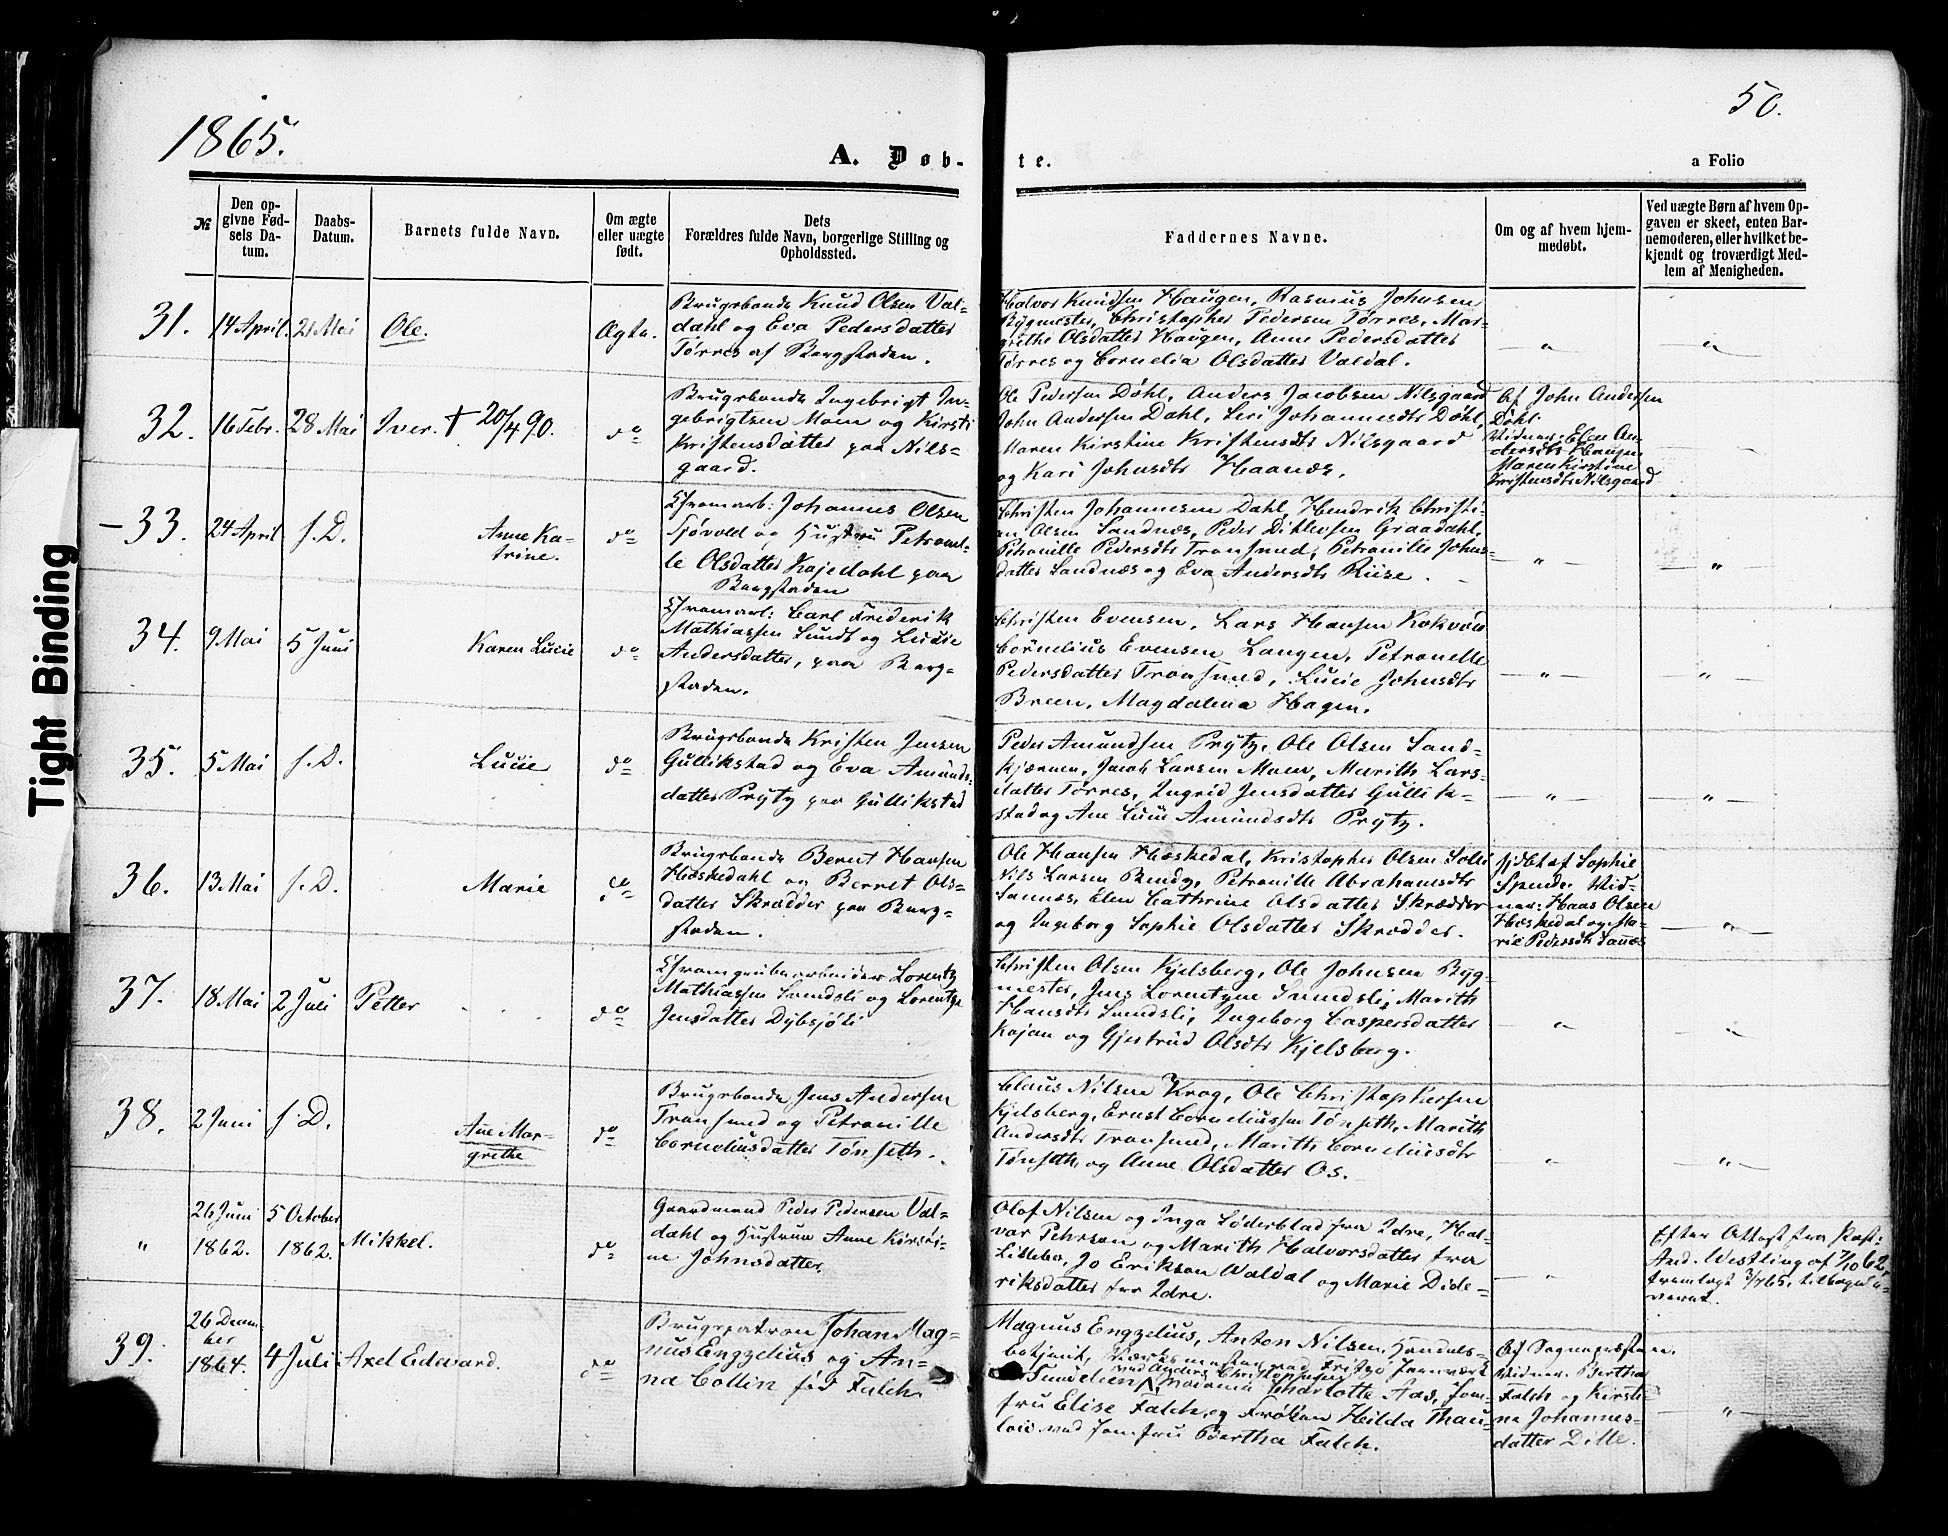 Tight Binding
1865.
50.
A. Døb-
te.
a Folio
№
Den op-
givne Fød-
sels Da-
tum.
Daabs-
Datum.
Barnets fulde Navn.
Om ægte
eller uægte
født.
Dets
Forældres fulde Navn, borgerlige Stilling og
Opholdssted.
Faddernes Navne.
Om og af hvem hjem-
medøbt.
Ved uægte Børn af hvem Op-
gaven er skeet, enten Bar-
nemoderen, eller hvilket be-
kjendt og troværdigt Med-
lem af Menigheden.
31. 14 April. 21 Mai Ole. Ægte.
Brugsbonde Knud Olsen Val-
dahl og Eva Pedersdatter
Tørres af Bergstaden.
Halvor Knudsen Haugen, Rasmus Johnsen
Bygmester, Christopher Pedersen Tørres, Mar-
grethe Olsdatter Haugen, Anne Pedersdatter
Tørres og Cornelia Olsdatter Valdal.
— " —
— " —
32. 16 Febr. 28 Mai Iver. † 20/4 90. do
Brugsbonde Ingebrigt In-
gebrigtsen Moen og Kirsti
Kristensdatter paa Nils-
gaard.
Ole Pedersen Døhl, Anders Jacobsen Nilsgaard
John Andersen Dahl, Siri Johannesdtr Døhl,
Maren Kirstine Kristensdtr Nilsgaard
og Kari Johnsdtr Haanæs.
Af John Andersen
Døhl.
Vidner: Elen An-
dersdtr Haugen
Maren Kirstine
Kristensdtr Nilsgaard
— 33. 24 April s. D. Anne Ka-
trine. do
Gromarb: Johannes Olsen
Sjøvold og Hustru Petronel-
le Olsdatter Kojedahl paa
Bergstaden
Christen Johannesen Dahl, Hendrik Christi-
an Olsen Sandnæs, Peder Ditlevsen Graadahl,
Petronille Pedersdtr Tronsmed, Petronille Johns-
datter Sandnæs og Eva Andersdtr Riise.
— " —
"
34. 9 Mai 5 Juni Karen Lucie do
Gromarb: Carl Frederik
Mathiassen Sundt og Lucie
Andersdatter, paa Berg-
staden.
Christen Evensen, Lars Hansen Kokvold
Cornelius Evensen Langen, Petronelle
Pedersdatter Tronsmed, Lucie Johnsdtr
Breen, Magdalena Hagen.
— " —
— " —
35. 5 Mai s. D. Lucie do
Brugsbonde Kristen Jensen
Gullikstad og Eva Amunds-
datter Prytz paa Gullikstad
Peder Amundsen Prytz, Ole Olsen Sand-
kjærnen, Jacob Larsen Moen, Marith Lars-
datter Tørres, Ingrid Jensdatter Gullik-
stad og Ane Lucie Amundsdtr Prytz.
— " —
— " —
36. 13 Mai s. D. Marie do
Brugsbonde Bernt Hansen
Hæskedahl og Berret Ols-
datter Skrædder paa Berg-
staden.
Ole Hansen Hæskedal, Kristopher Olsen
Nils Larsen Bendz, Petronille Abrahamsdtr
Sannæs, Elen Cathrine Olsdatter Skrædder
og Ingeborg Sophie Olsdatter Skrædder.
Hjdbt af Sophie
Spende. Vid-
ner: Hans Olsen
Hæskedal og Ma-
rie Pedersdtr Sanæs
— " —
37. 18 Mai 2 Juli Petter do
Gromgrubearbeider Lorentz
Mathiassen Svendsli og Lorentze
Jensdatter Dybsjøli
Christen Olsen Kjelsberg, Ole Johnsen Byg-
mester, Jens Lorentzen Svendsli, Marith
Hansdtr Svendsli, Ingeborg Caspersdatter
Kojan og Gjertrud Olsdtr Kjelsberg.
— " —
— " —
38. 2 Juni s. D. Ane Mar-
grethe do
Brugsbonde Jens Andersen
Tronsmed og Petronille
Corneliusdatter Tønseth.
Claus Nilsen Krog, Ole Christophersen
Kjelsberg, Ernst Corneliussen Tønseth, Marith
Andersdtr Tronsmed, Marith Corneliusdtr
Tønseth, og Anne Olsdatter Os.
— " —
— " —
" 26 Juni
1862. 5 October
1862. Mikkel. do
Gaardmand Peder Pedersen Val-
dahl og Hustru Anne Kirsti-
ne Johnsdatter.
Olof Nilsen og Inga Söderblad fra Idre, Hal-
var Pehrson og Marith Halvorsdatter fra
Lillebo, Jo Erikson Waldal og Marie Dide-
riksdatter fra Idre.
— " —
Efter Attest fra Past:
And. Westling af 7/10 62
fremlagt 3/7 65, tilbagele-
veret.
39. 26 Decem-
ber
1864. 4 Juli Axel Edevard. do
Brugspatron Johan Mag-
nus Engzelius og An-
na Collin fød Falch.
Magnus Engzelius, Anton Nilsen, Handels-
betjent, Værksmester ved Fritzø Jernværk
ved Anders Christophersen
Tundelien, Madame Charlotte Aas, Jom-
fru Elise Falch, og Frøken Hilda Thau-
low ved Jomfru Bertha Falch.
Af Sognepresten.
Vidner. Bertha
Falch og Kirsti-
ne Johannes-
datter Dille.
— " —